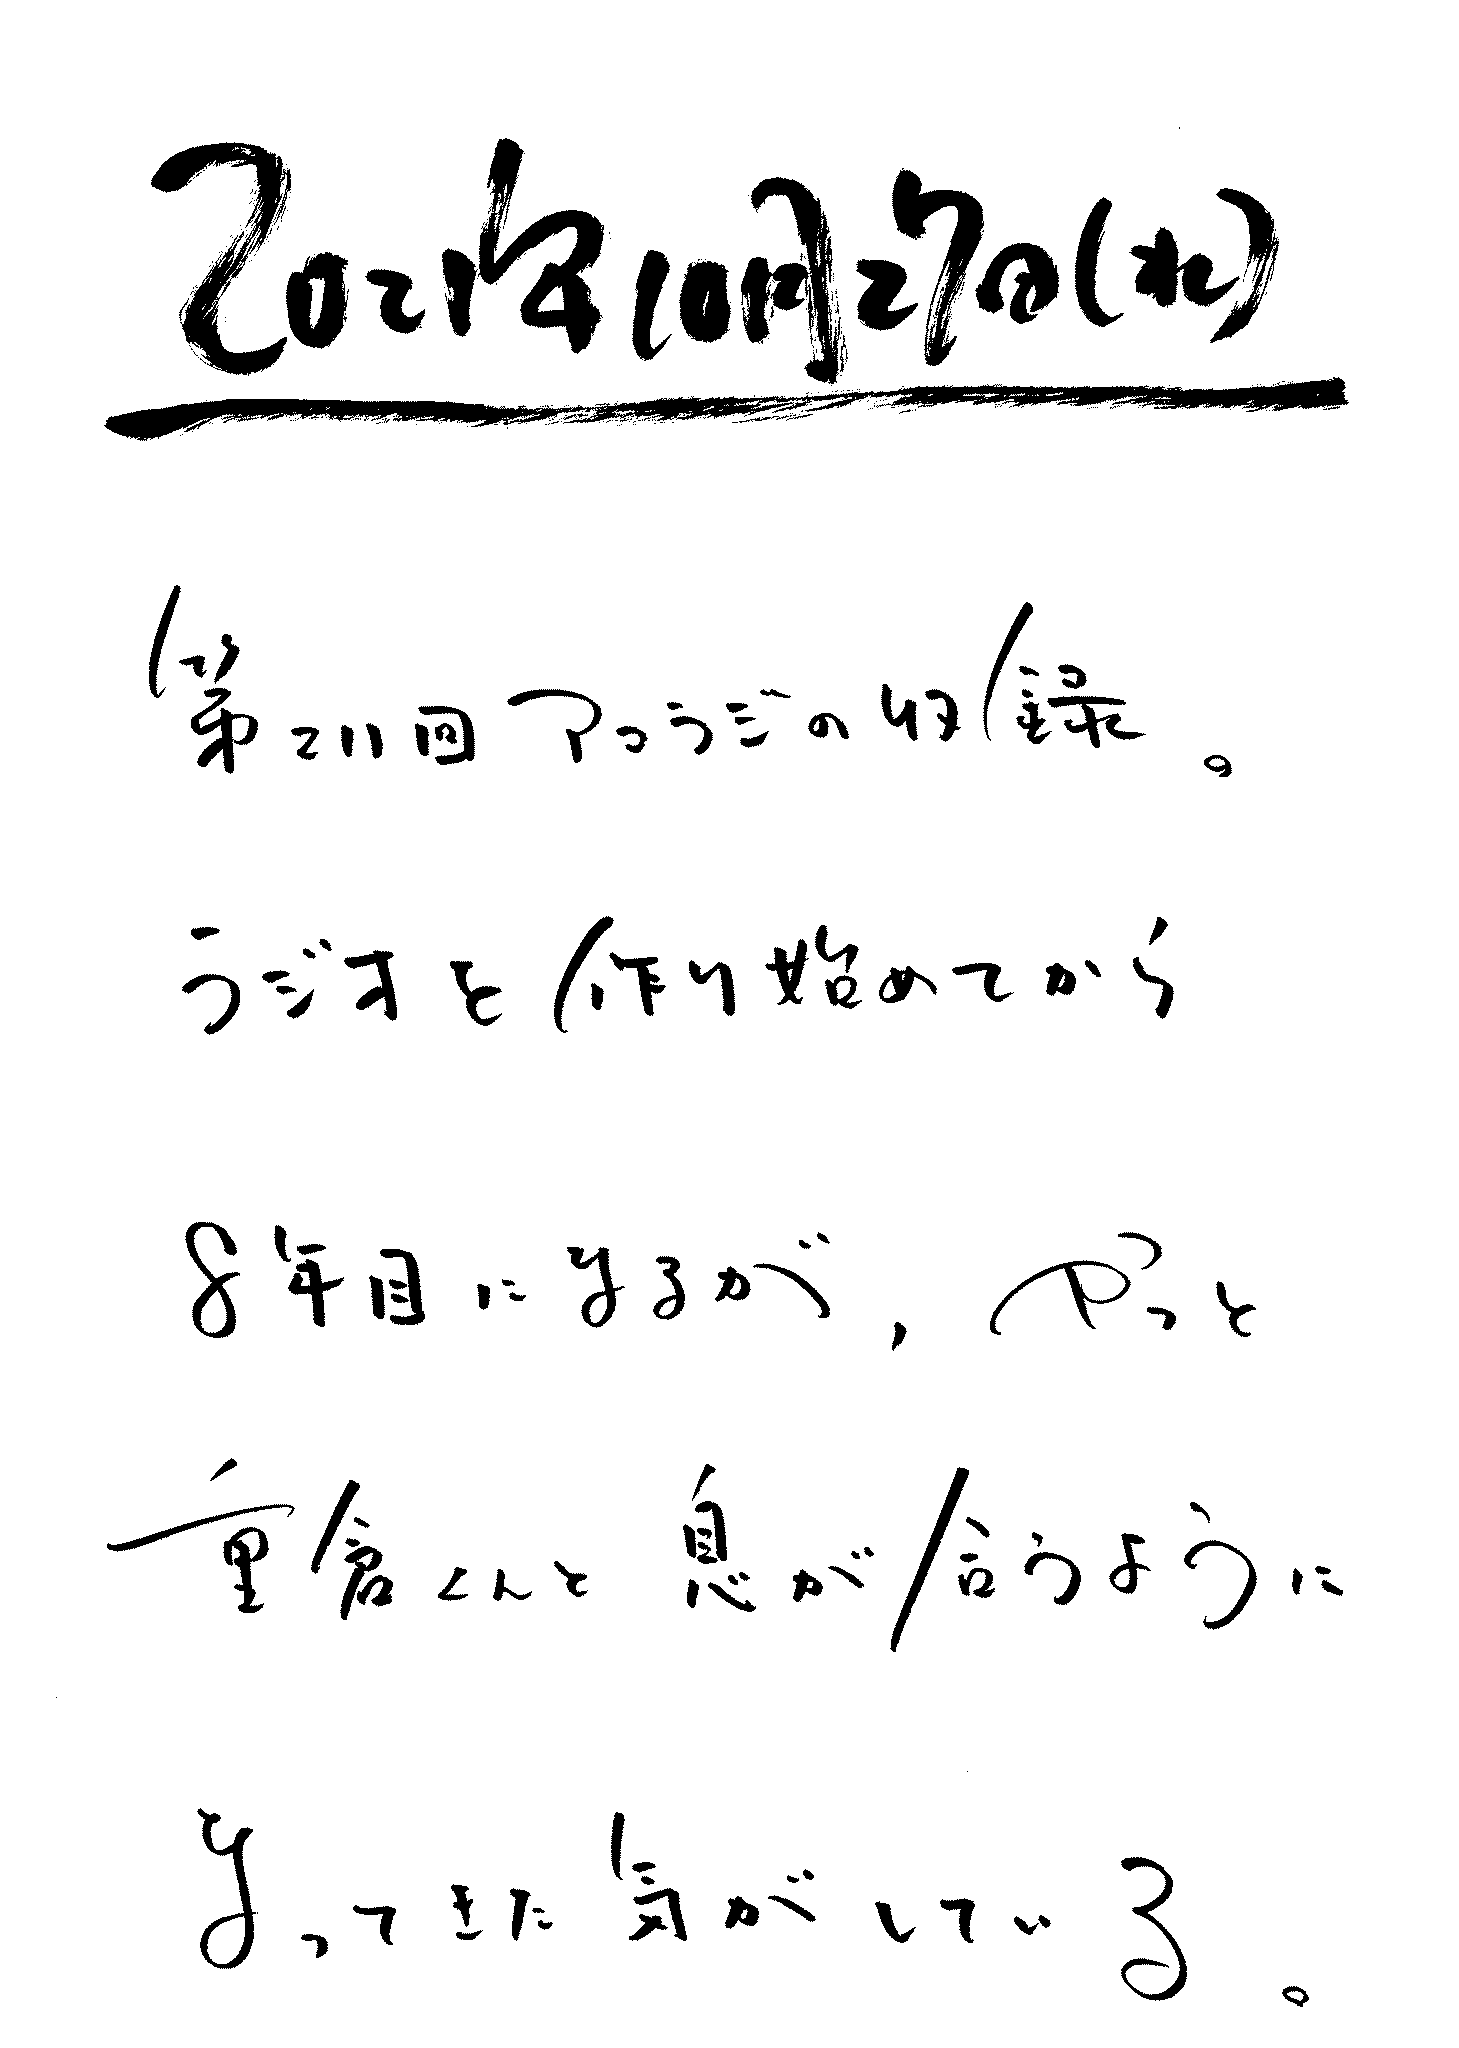 2021年10月27日(水)
第211回アコラジの収録。
ラジオを作り始めてから
8年目になるが、やっと
重倉くんと息が合うように
なってきた気がしている。